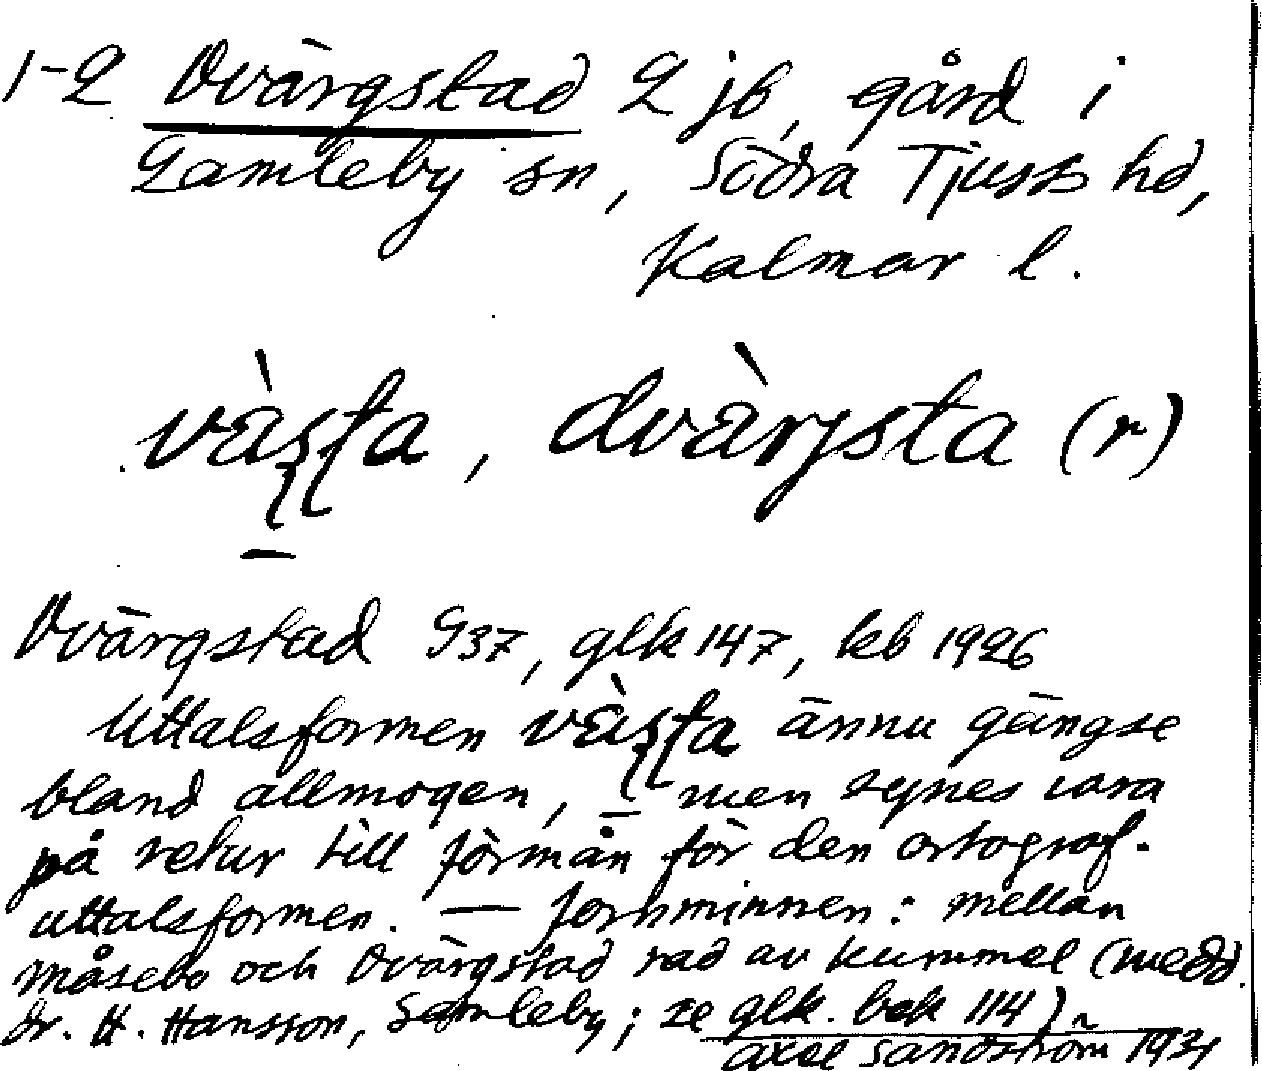 1-2 Dvärgstad 2 jb, gård i
Gamleby sn, Södra Tjusts hd,
Kalmar l.
vàʂʈa, dvàrjsta (r)
Dvärgstad G37, glk 147, kb 1926
Uttalsformen vàʂʈa ännu gängse
bland allmogen, men synes vara
på retur till förmån för den ortograf.
uttalsformen. — Fornminnen: mellan
Måsebo och Dvärgstad rad av kummel (medd.
dr. H. Hansson, Gamleby; se glk. bek 114)
Axel Sandström 1931